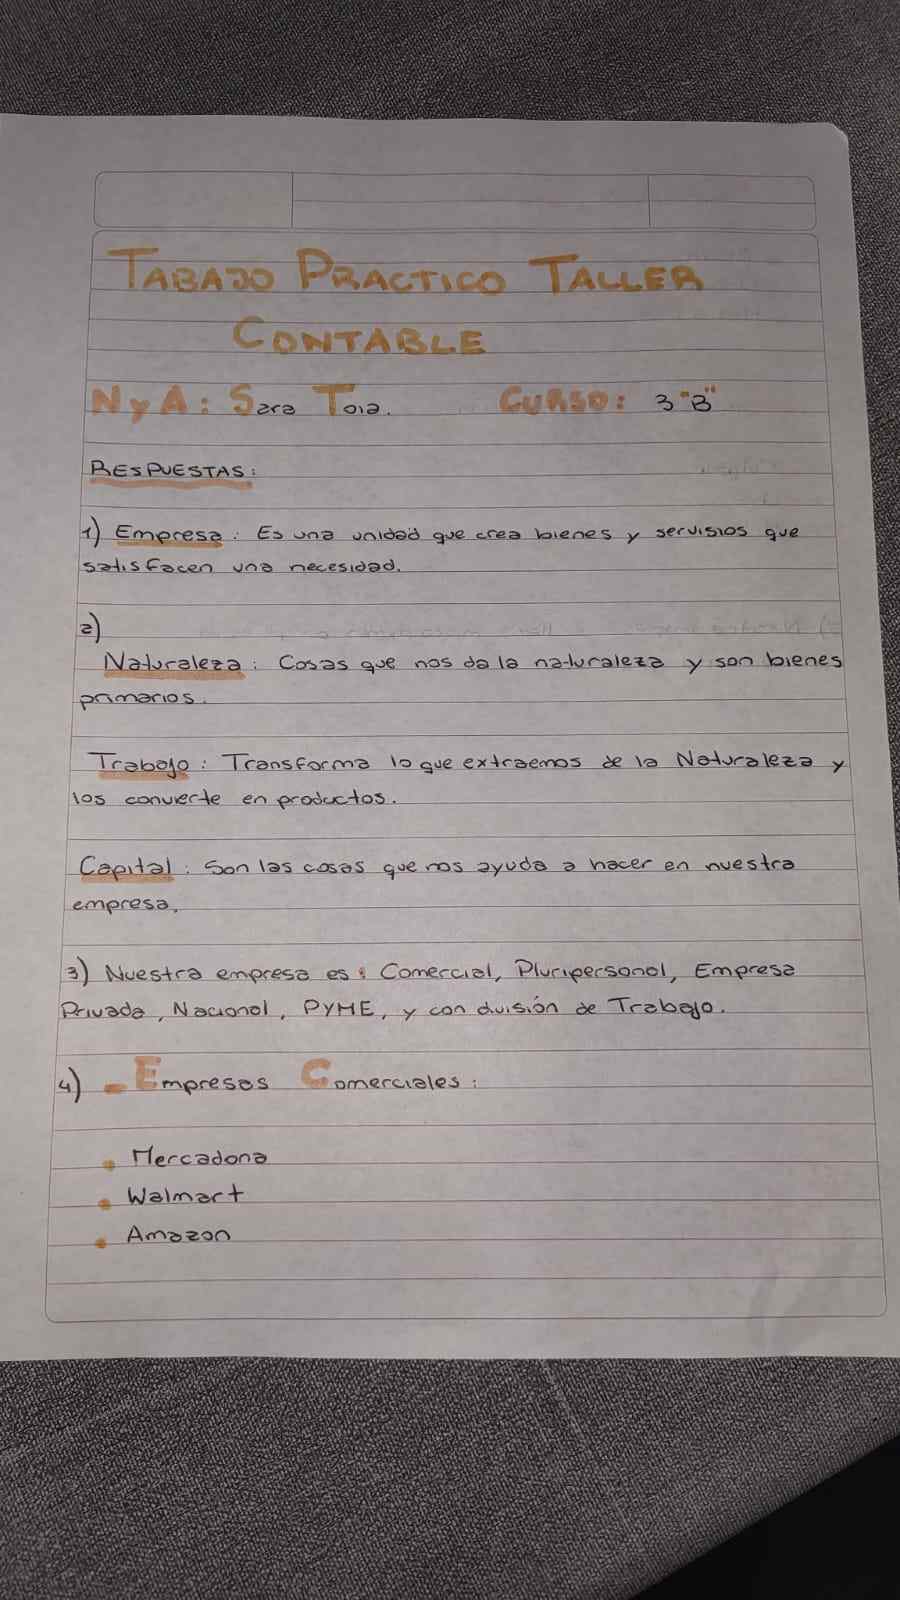 TABAJO PRACTICO TALLER
CONTABLE
NyA: Sara Toia. CURSO: 3 "B"
RESPUESTAS:
1) Empresa: Es una unidad que crea bienes y servisios que
satisfacen una necesidad.
2)
Naturaleza: Cosas que nos da la naturaleza y son bienes
primarios.
Trabajo: Transforma lo que extraemos de la Naturaleza y
los convierte en productos.
Capital: Son las cosas que nos ayuda a hacer en nuestra
empresa.
3) Nuestra empresa es: Comercial, Pluripersonal, Empresa
Privada, Nacional, PYME, y con división de Trabajo.
4) - Empresas Comerciales:
• Mercadona
• Walmart
• Amazon